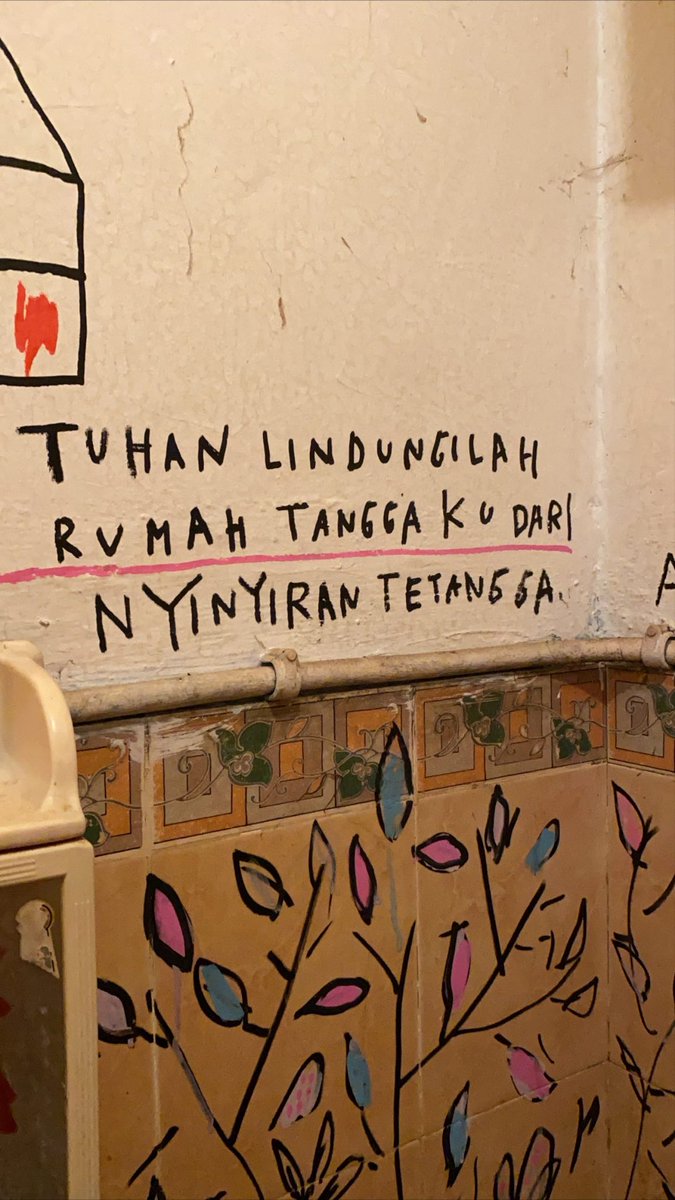 TUHAN LINDUNGILAH
RUMAH TANGGA KU DARI
NYINYIRAN TETANGGA.
A